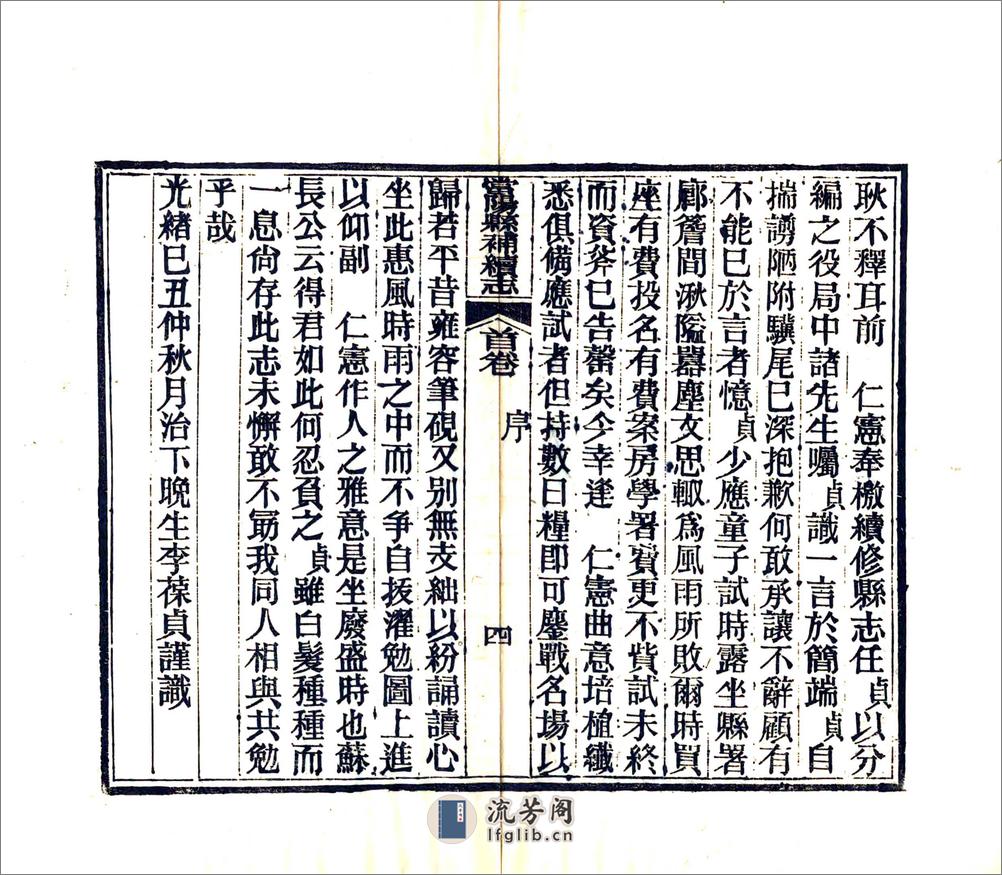 耿不釋耳前　仁憲奉檄續修縣志任貞以分
編之役局中諸先生囑貞識一言於簡端貞自
揣譾陋附驥尾已深抱歉何敢承讓不辭顧有
不能已於言者憶貞少應童子試時露坐縣署
廊簷間湫隘囂塵文思輒爲風雨所敗爾時買
座有費投名有費案房學署費更不貲試未終
而資斧已告罄矣今幸逢　仁憲曲意培植纖
悉俱備應試者但持數日糧即可鏖戰名場以
當陽縣補續志
首卷
序
四
歸若平昔雍容筆硯又別無支絀以紛誦讀心
坐此惠風時雨之中而不爭自拔濯勉圖上進
以仰副　仁憲作人之雅意是坐廢盛時也蘇
長公云得君如此何忍負之貞雖白髮種種而
一息尙存此志未懈敢不勗我同人相與共勉
乎哉
光緒己丑仲秋月治下晚生李葆貞謹識
流芳阁
lfglib.cn